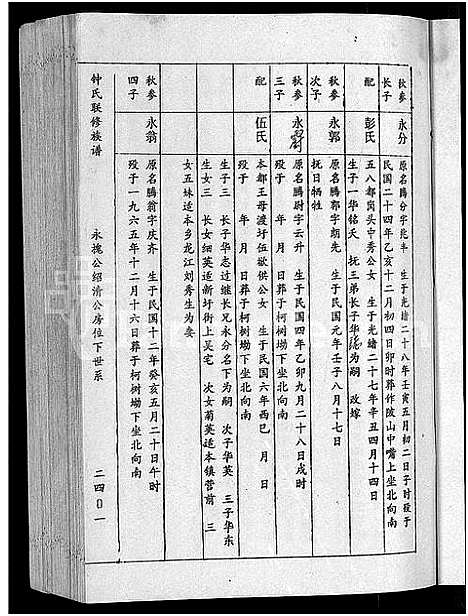 秋参长子 永分 原名鹏分字兆丰 生于光绪二十八年壬寅五月初二日子时殁于
民国二十四年乙亥十二月初四日卯时葬作陂山中嘴上坐北向南
配 彭氏 五八都岗头中秀公女 生于光绪二十七年辛丑四月十四日
生子一华铭夭 抚三弟长子华 为嗣 改嫁
秋参次子 永郭 原名鹏郭字朗先 生于民国元年壬子八月十七日
抗日牺牲
秋参三子 永尉 原名鹏尉字云升 生于民国四年乙卯九月二十八日戌时
殁于 年 月 日葬于柯树塅下坐北向南
配 伍氏 本都王母渡圩伍欲供公女 生于民国六年丁巳 月 日
殁于 年 月 日葬于柯树塅下坐北向南
生子三 长子华志过继长兄永分名下为嗣 次子华英 三子华东
生女三 长女细英适新圩街上吴宅 次女菊英适本镇营前 三
女五妹适本乡龙江刘秀生为妻
秋参四子 永翁 原名鹏翁字庆齐 生于民国十二年癸亥五月二十日午时
殁于一九六五年十二月十六日葬于柯树塅下坐北向南
钟氏联修族谱 永槐公绍清公房位下世系 二四0一